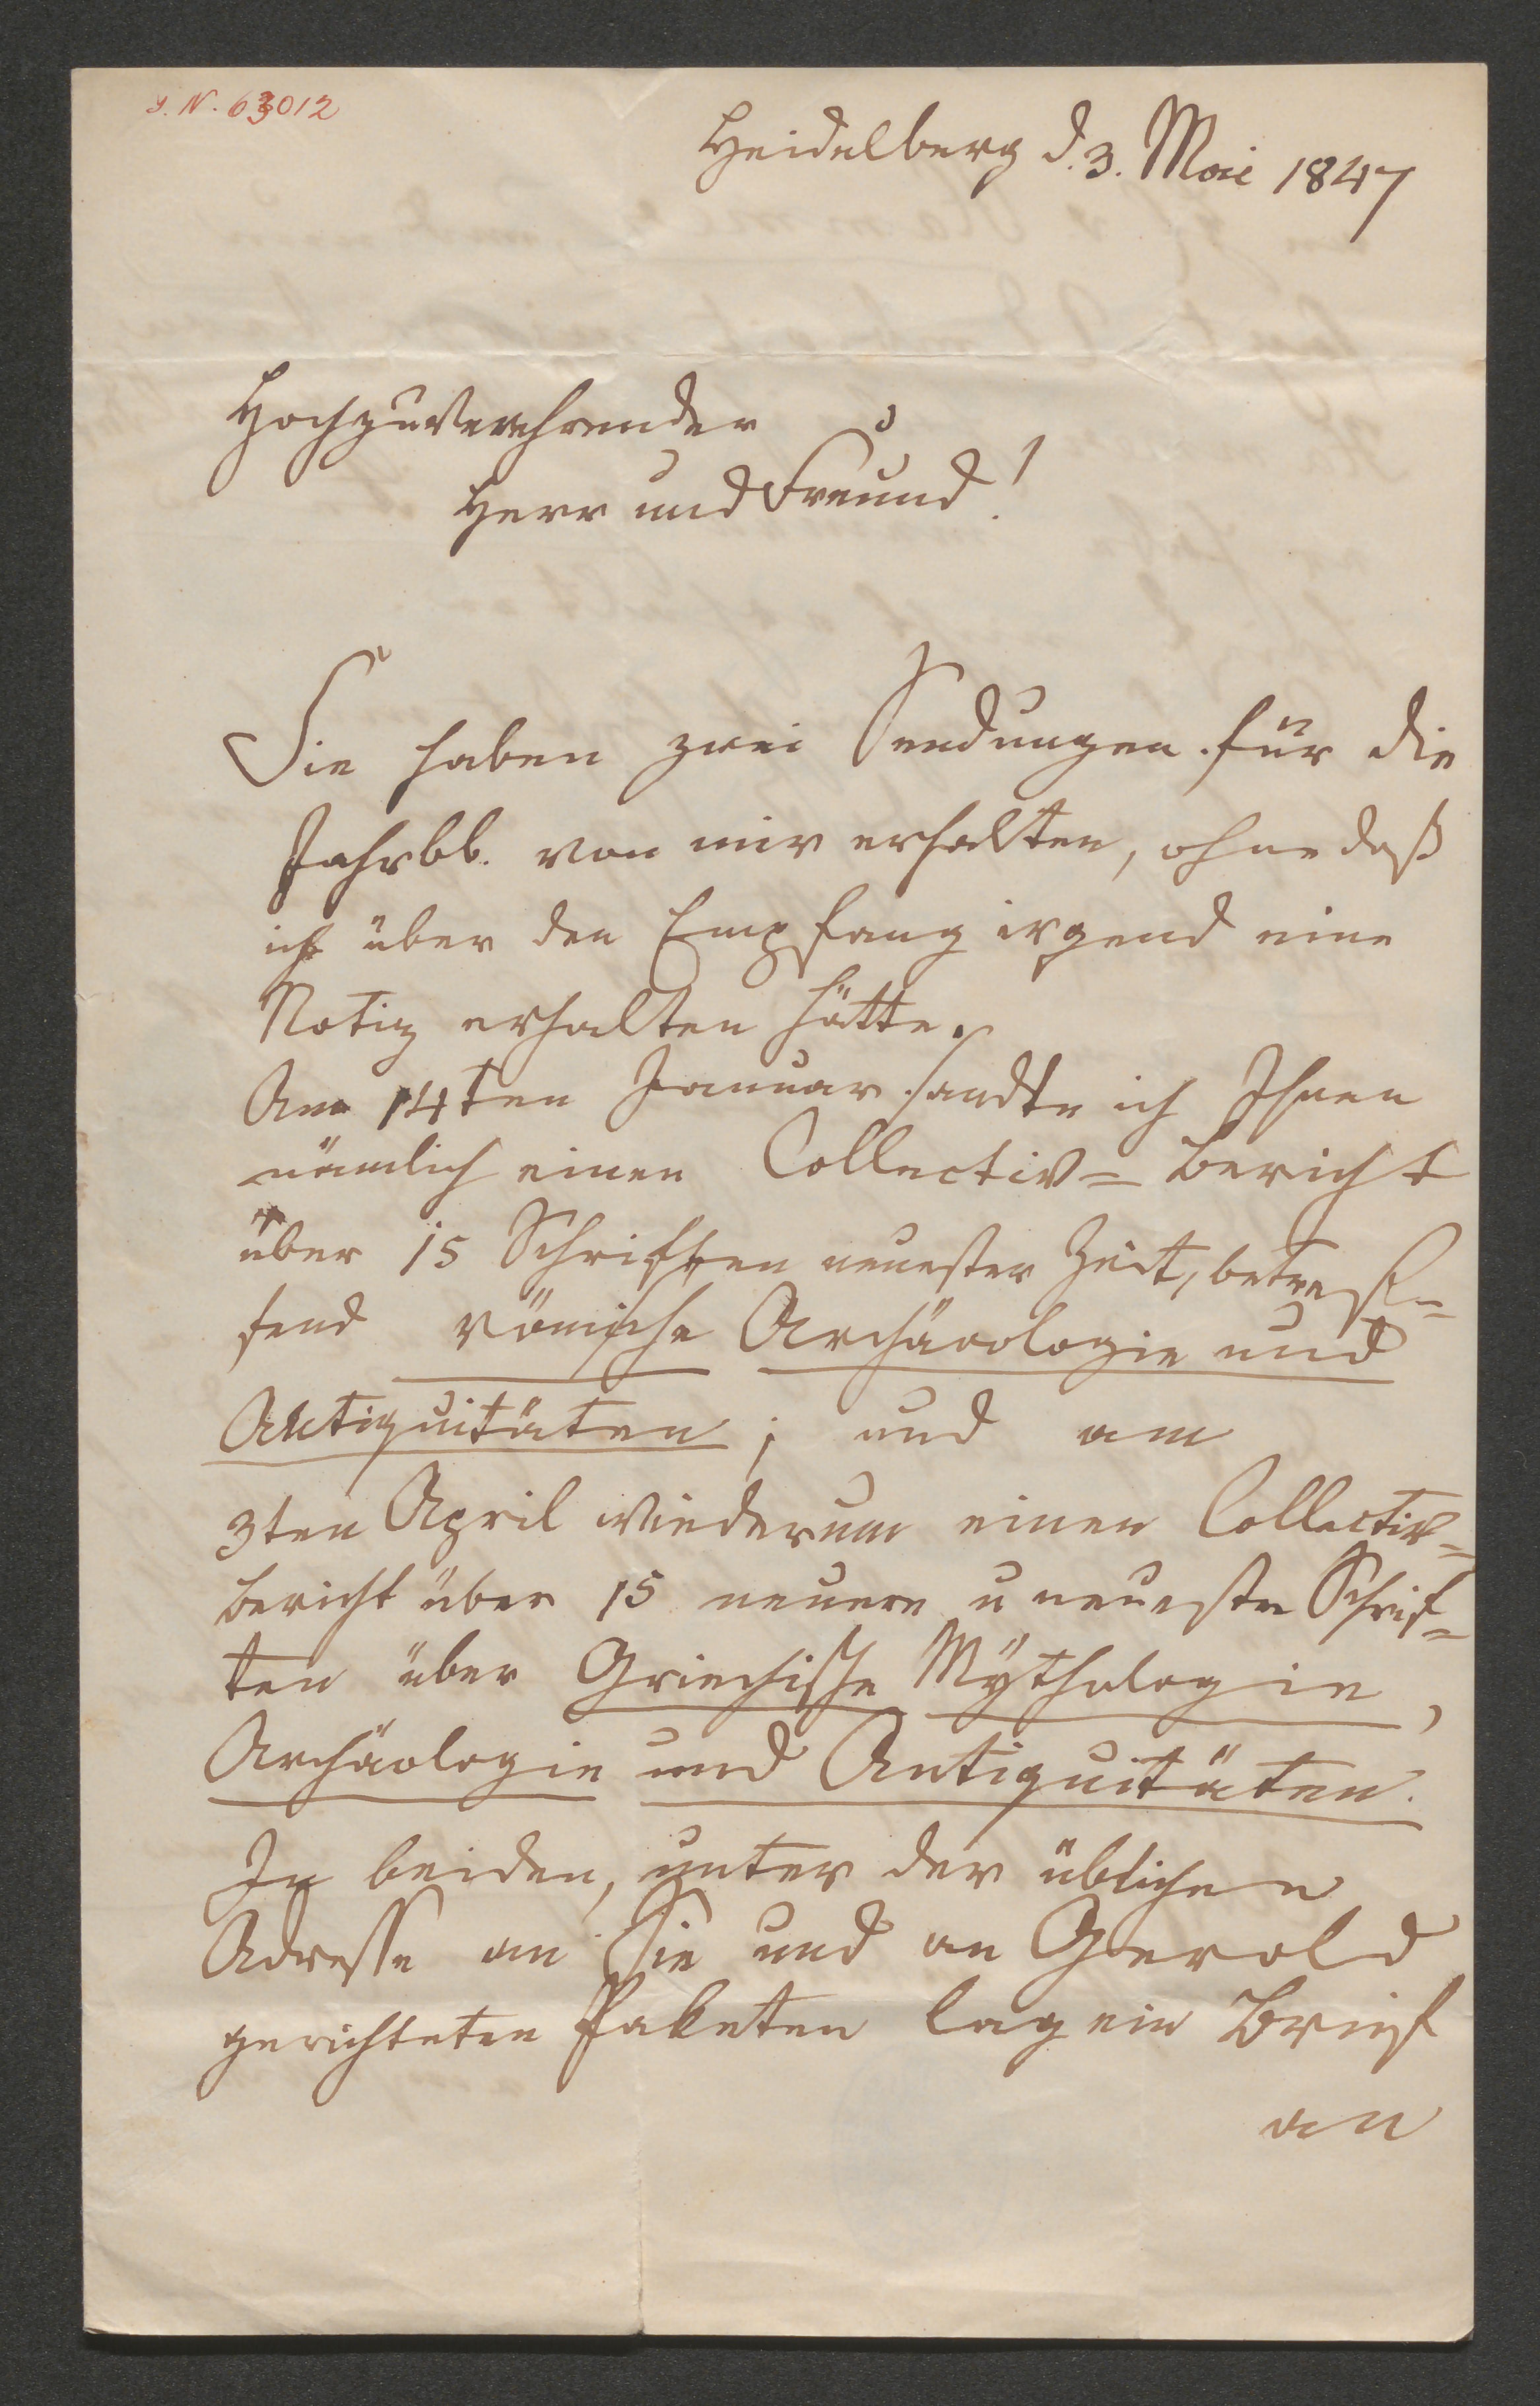 J. N. 63012
Heidelberg d. 3. Mai 1847
Hochzuverehrender
Herr und Freund!
Sie haben zwei Sendungen für die
Jahrbb. von mir erhalten, ohne daß
ich über den Empfang irgend eine
Notiz erhalten hätte.
Am 14ten Januar sandte ich Ihnen
nämlich einen Collectiv=Bericht
über 15 Schriften neuester Zeit, betref=
fend römische Archäologie und
Antiquitäten; und am
3ten April wiederum einen Collectiv=
bericht über 15 neuere u neueste Schrif=
ten über Griechische Mythologie,
Archäologie und Antiquitäten.
In beiden, unter der üblichen
Adresse an Sie und an Gerold
gerichteten Paketen lag ein Brief
an